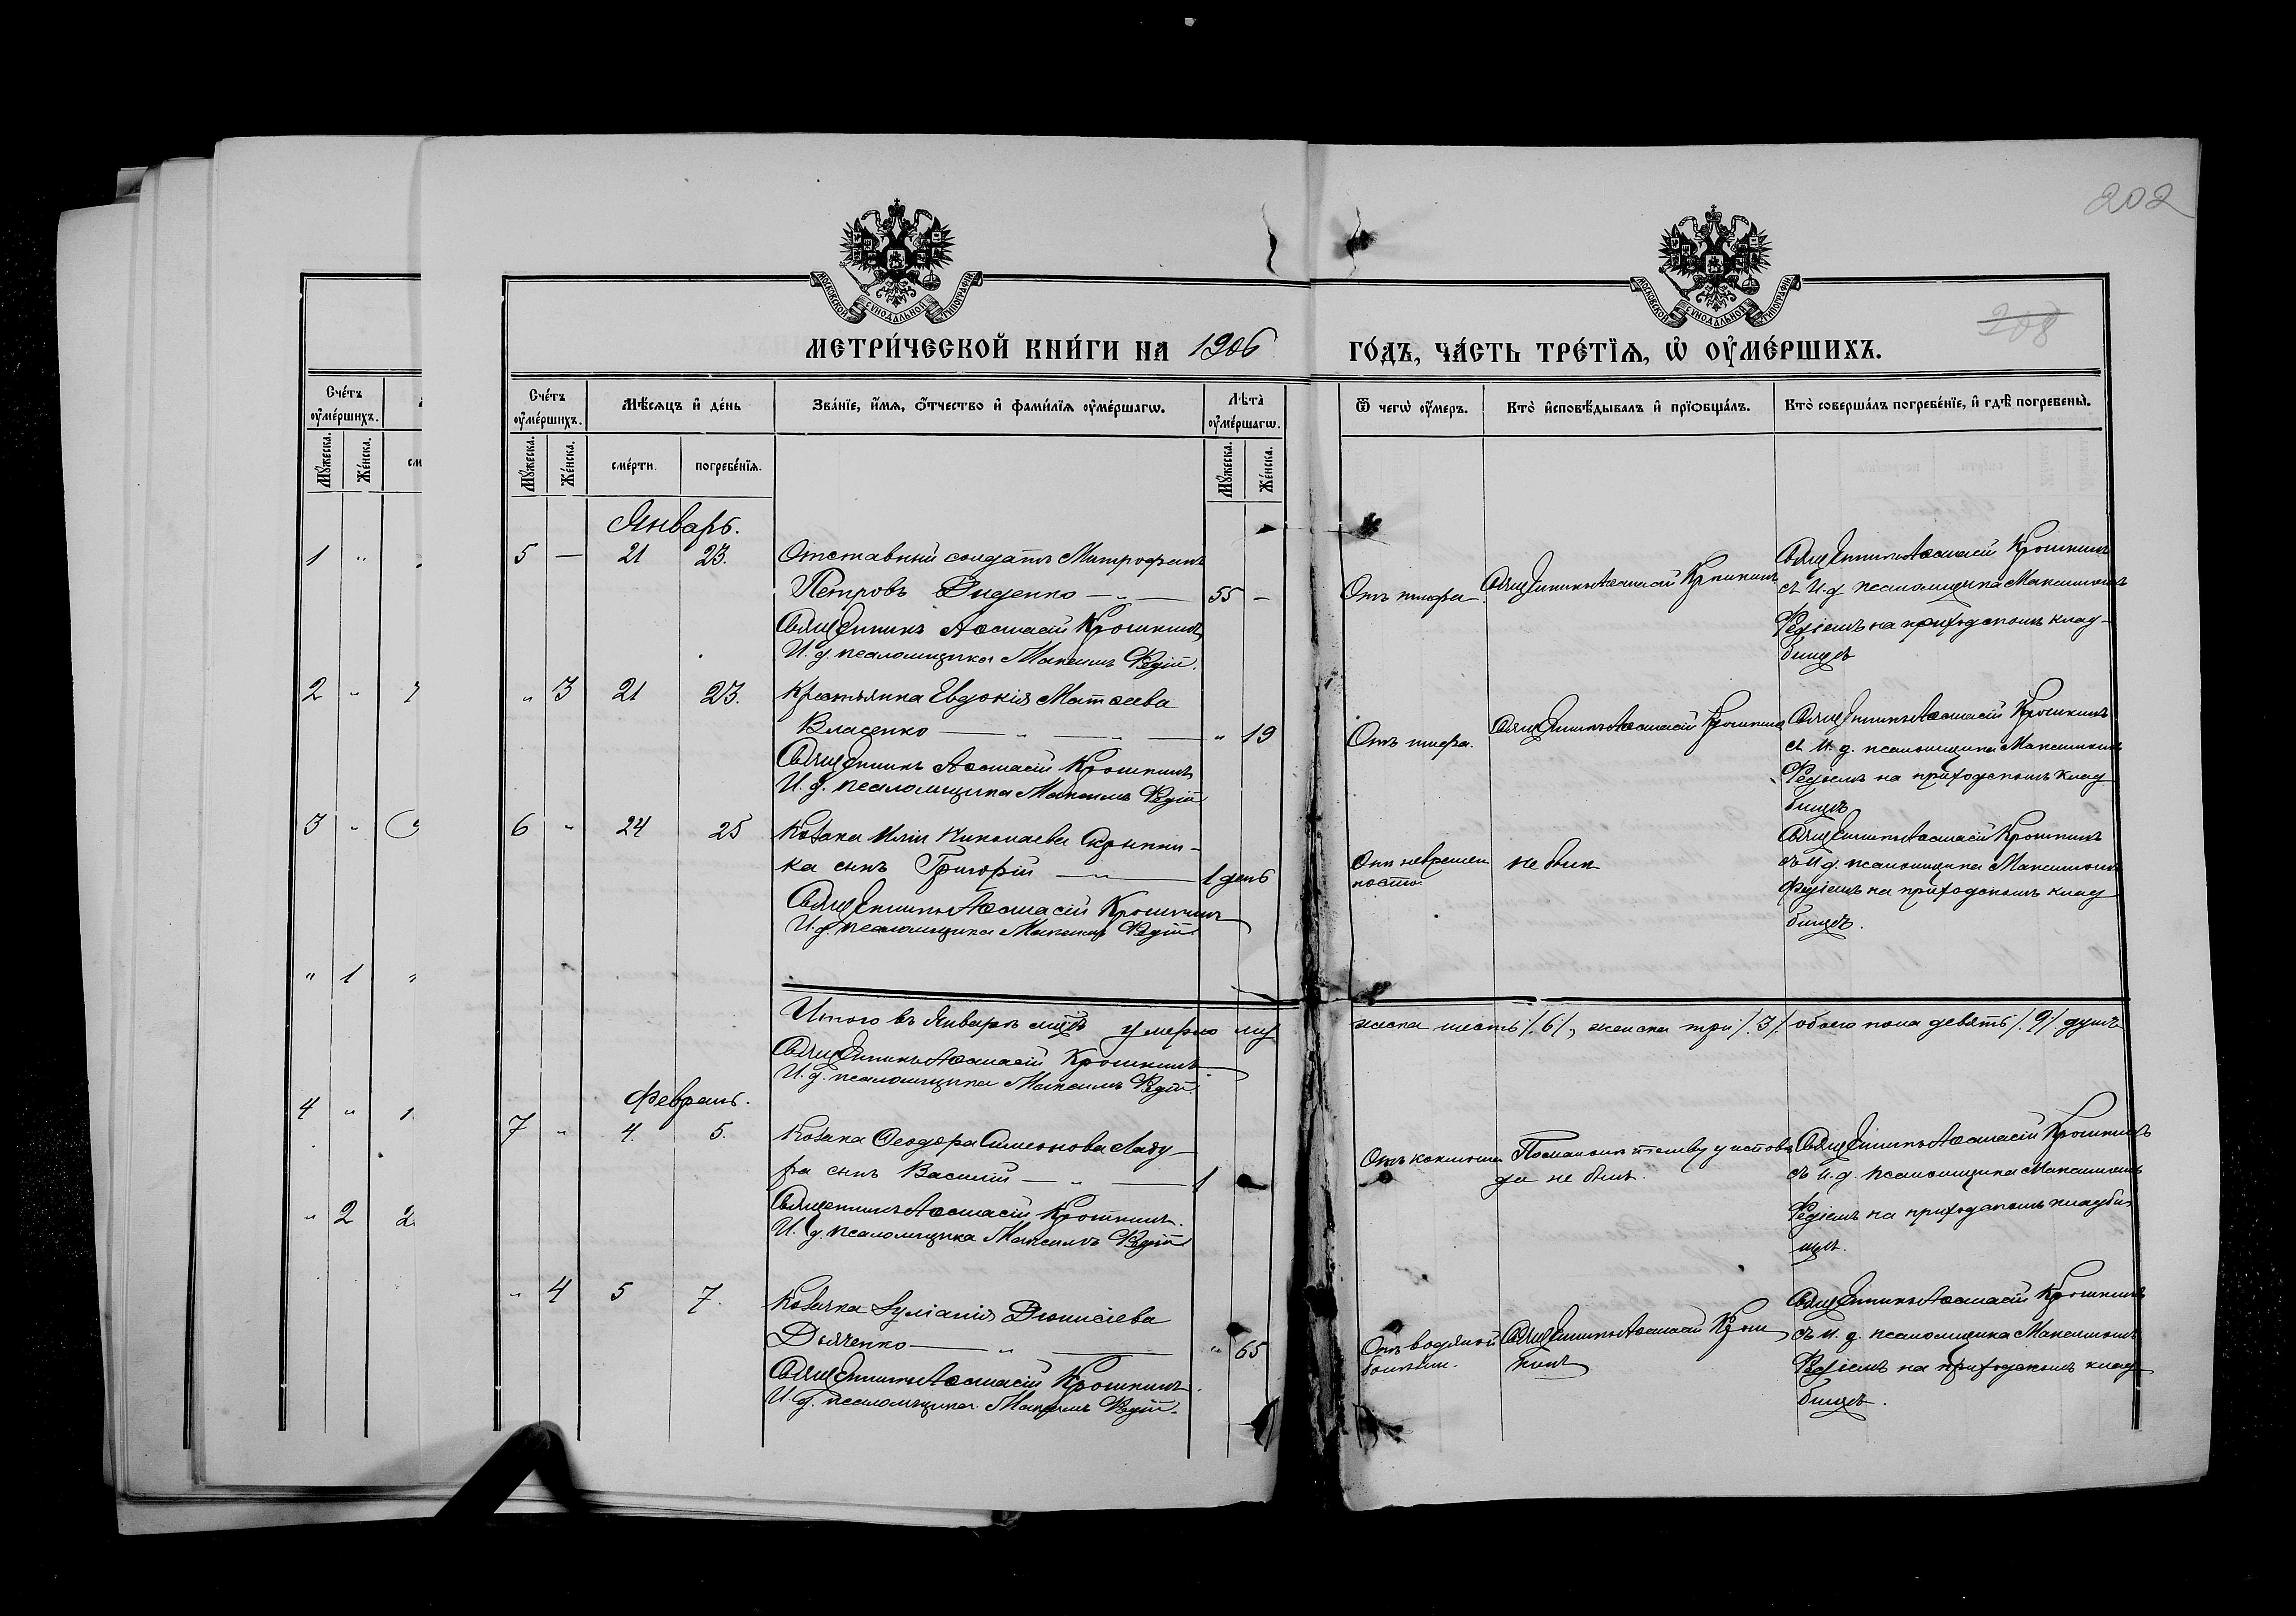 202
208
МОСКОВСКОЙ СѴНОДАЛЬНОЙ ТИПОГРАФІИ
МОСКОВСКОЙ СѴНОДАЛЬНОЙ ТИПОГРАФІИ
МЕТРИ́ЧЕСКОЙ КНИ́ГИ НА 1906 ГО́ДЪ, ЧА́СТЬ ТРЕ́ТЇѦ, Ѡ҆ ОУ҆МЕ́РШИХЪ.
Сче́тъ оу҆ме́ршихъ.
Мꙋ́жеска.
Же́нска.
Сче́тъ оу҆ме́ршихъ.
Мꙋ́жеска.
Же́нска.
Мѣ́сяцъ и҆ де́нь
сме́рти.
погребе́нїя.
Зва́нїе, и҆́мя, ѻ҆́тчество и҆ фами́лїя оу҆ме́ршагѡ.
Лѣта̀ оу҆ме́ршагѡ.
Мꙋ́жеска.
Же́нска.
Ѿ чегѡ̀ оу҆́меръ.
Кто̀ и҆сповѣ́дывалъ и҆ прїѡбща́лъ.
Кто̀ соверша́лъ погребе́нїе, и҆ гдѣ̀ погребены̀.
1 "
2 "
3 "
" 1
4 "
" 2
Январь.
5 — 21 23. Отставный солдатъ Митрофанъ
Петровъ Диденко — " — 55 —
Священникъ Аѳанасій Крошкинъ
И. д. псаломщика Максимъ Редій.
Отъ тифа.
Священникъ Аѳанасій Крошкинъ
Священникъ Аѳанасій Крошкинъ
съ И. д. псаломщика Максимомъ
Редіемъ на приходскомъ клад-
бищѣ
" 3 21 23. Крестьянка Евдокія Матѳеева
Власенко — " — " — " 19
Священникъ Аѳанасій Крошкинъ
И. д. псаломщика Максимъ Редій
Отъ тифа.
Священникъ Аѳанасій Крошкинъ
Священникъ Аѳанасій Крошкинъ
съ И. д. псаломщика Максимомъ
Редіемъ на приходскомъ клад
бищѣ
6 " 24 25 Козака Иліи Николаева Скрынни-
ка сынъ Григорій — " — 1 день
Священникъ Аѳанасій Крошкинъ
И. д. псаломщика Максимъ Редій.
не былъ
Священникъ Аѳанасій Крошкинъ
съ И. д. псаломщика Максимомъ
Редіемъ на приходскомъ клад
бищѣ.
Итого въ Январѣ мцѣ умерло му
жеска шесть /.6/, женска три /.3/. обоего пола девять /.9/. душъ
Священникъ Аѳанасій Крошкинъ
И. д. псаломщика Максимъ Редій.
Февраль.
7 " 4. 5. Козака Ѳеодора Симеонова
сынъ Василій — " — 1
Священникъ Аѳанасій Крошкинъ.
И. д. псаломщика Максимъ Редій
Отъ коклюша
По малолѣтству у испове
да не былъ.
Священникъ Аѳанасій Крошкинъ
съ И. д. псаломщика Максимомъ
Редіемъ на приходскомъ кладби
щѣ.
" 4 5 7. Козачка Іуліанія Діонисіева
Дьяченко — " — " 65
Священникъ Аѳанасій Крошкинъ.
И. д. псаломщика Максимъ Редій.
Отъ водяной
болѣзни.
Священникъ Аѳанасій Крош
кинъ
Священникъ Аѳанасій Крошкинъ
съ И. д. псаломщика Максимомъ
Редіемъ на приходскомъ клад
бищѣ.